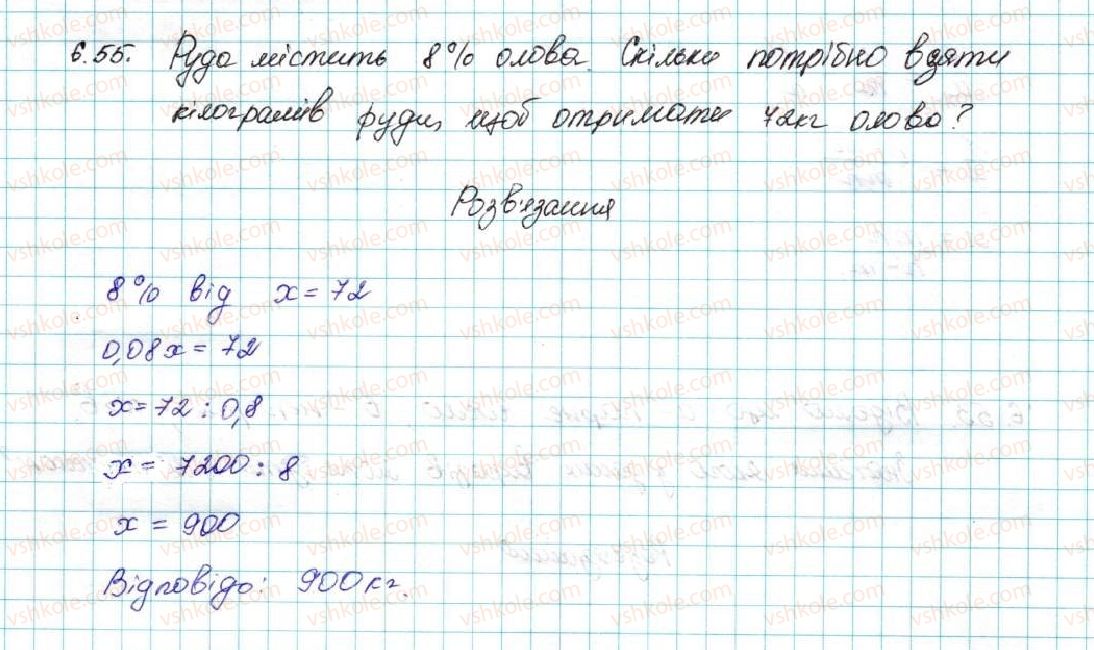 6.55. Руда містить 8% олова. Скільки потрібно взяти
кілограмів руди, щоб отримати 72кг олова?
Розв'язання
8% від x = 72
0,08x = 72
x = 72 : 0,8
x = 7200 : 8
x = 900
Відповідь: 900кг.